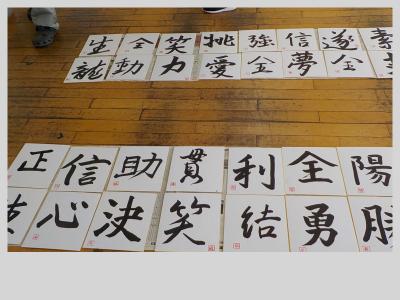 生全笑挑強信遂素
龍動力愛金夢金
正信助貫利全陽
心決笑結勇勝